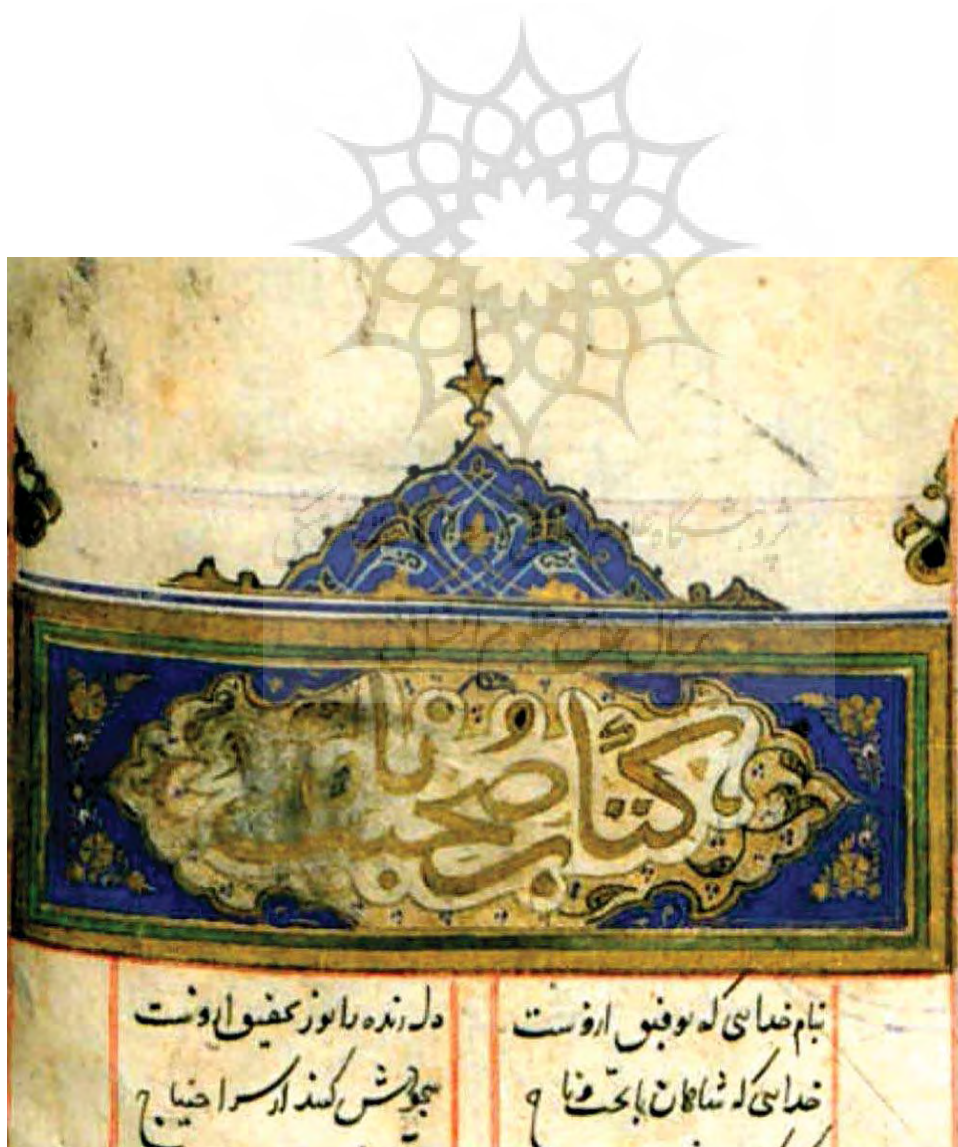 پژوهشگاه علوم انسانی و مطالعات فرهنگی
پرتال جامع علوم انسانی
کتاب صحبت نامه
بنام خدایی که توفیق ازوست دل زنده را نور تحقیق ازوست
خدایی که شاهان با تخت و تاج سجودش کنند از سر احتیاج